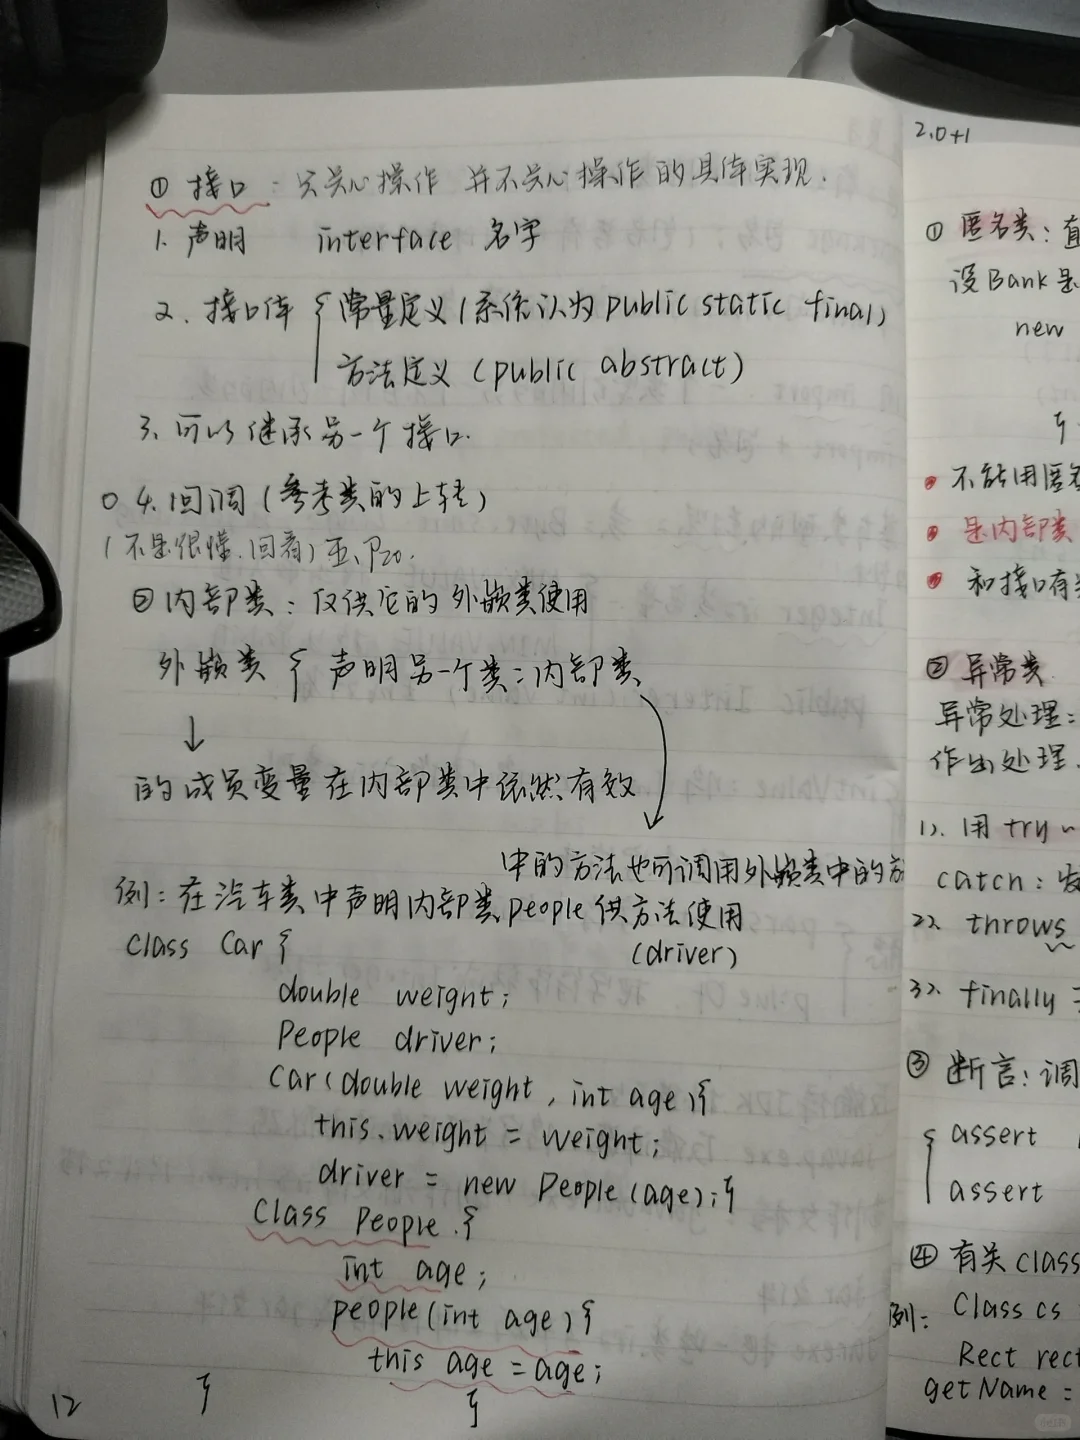 ① 接口：只关心操作 并不关心操作的具体实现.
1. 声明 interface 名字
2. 接口体 { 常量定义 (系统认为 public static final)
方法定义 (public abstract)
3. 可以继承另一个接口.
4. 回调 (参考类的上转)
(不是很懂, 回看) P20.
② 内部类：仅供它的外嵌类使用
外嵌类 { 声明另一个类：内部类
↓
的成员变量在内部类中依然有效
中的方法也可调用外嵌类中的方
例：在汽车类中声明内部类 people 供方法使用
(driver)
class Car {
double weight;
People driver;
Car (double weight, int age) {
this.weight = weight;
driver = new People (age); }
Class People {
int age;
people (int age) {
this age = age;
}
}
12
2.0+1
① 匿名类：直
设 Bank 是
new
}
不能用匿名
是内部类
和接口有关
② 异常类
异常处理：
作出处理.
1). 用 try ~
catch: 发
2). throws
3). finally
③ 断言：调
{ assert
assert
④ 有关 class
例： Class cs
Rect rect
getName =